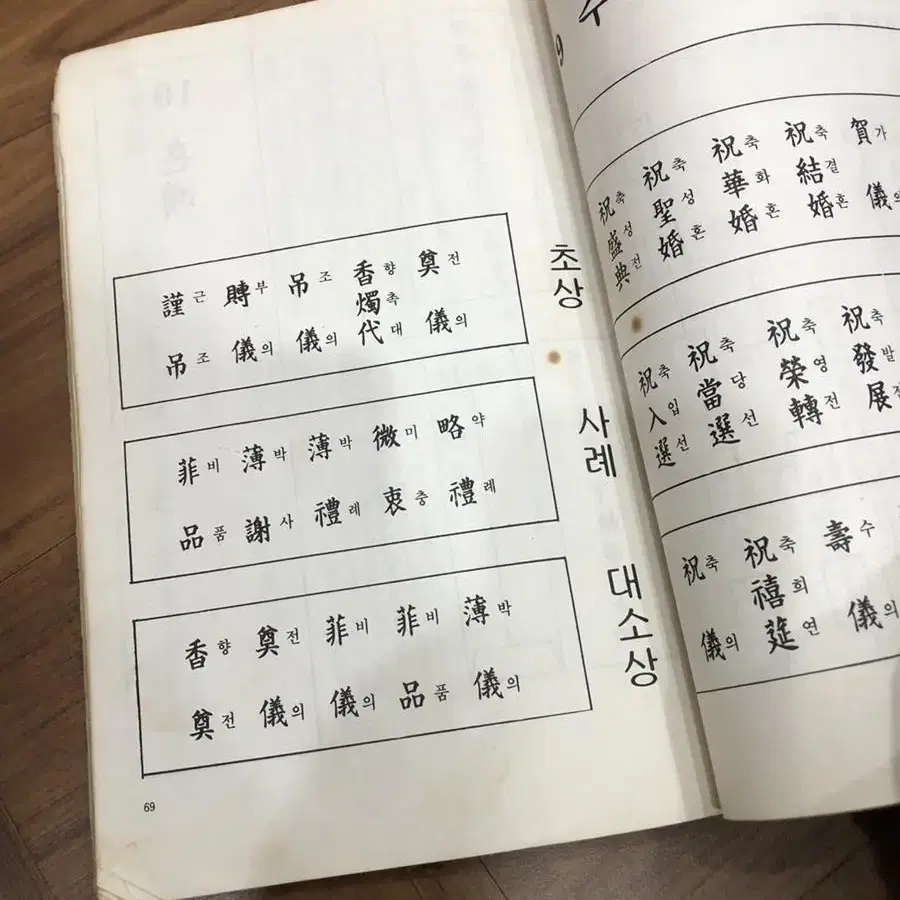 賀가儀의
祝축結결婚혼
祝축華화婚혼
祝축聖성婚혼
祝축盛성典전
祝축發발展전
祝축榮영轉전
祝축當당選선
祝축入입選선
壽수儀의
祝축禧희筵연
祝축儀의
초상
奠전儀의
香향燭축代대
吊조儀의
賻부儀의
謹근吊조
사례
略약禮례
微미衷충
薄박禮례
薄박謝사
菲비品품
대소상
薄박儀의
菲비品품
菲비儀의
奠전儀의
香향奠전
69